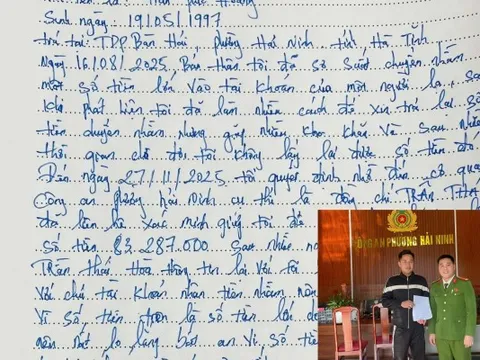 Sinh ngày: 19/05/1997
trú tại: TDP Bắc Hải, phường Hải Ninh, tỉnh Hà Tĩnh
Ngày 16/08/2025, Bản thân tôi đã sơ suất chuyển nhầm
một số tiền lớn vào tài khoản của một người lạ, sau
khi phát hiện tôi đã liên nhiều cách để xin trả lại số
tiền chuyển nhầm nhưng gặp nhiều khó khăn về sau nhiều
thời gian chờ đợi tôi không lấy lại được số tiền đó
Đến ngày 27/11/2025 tôi quyết định nhờ đến cơ quan
Công an phường hải Ninh cụ thể là đồng chí TRẦN THÁI
đã liên hệ xác minh giúp tôi
số tiền 83.287.000. Sau
Trần Thái Hoà thông tin lại với tôi
với chủ tài khoản nhận tiền nhầm nên
Vì số tiền trên là số tiền lớn
nên nhớ lo lắng bất an Vì số tiền
CÔNG AN PHƯỜNG HẢI NINH